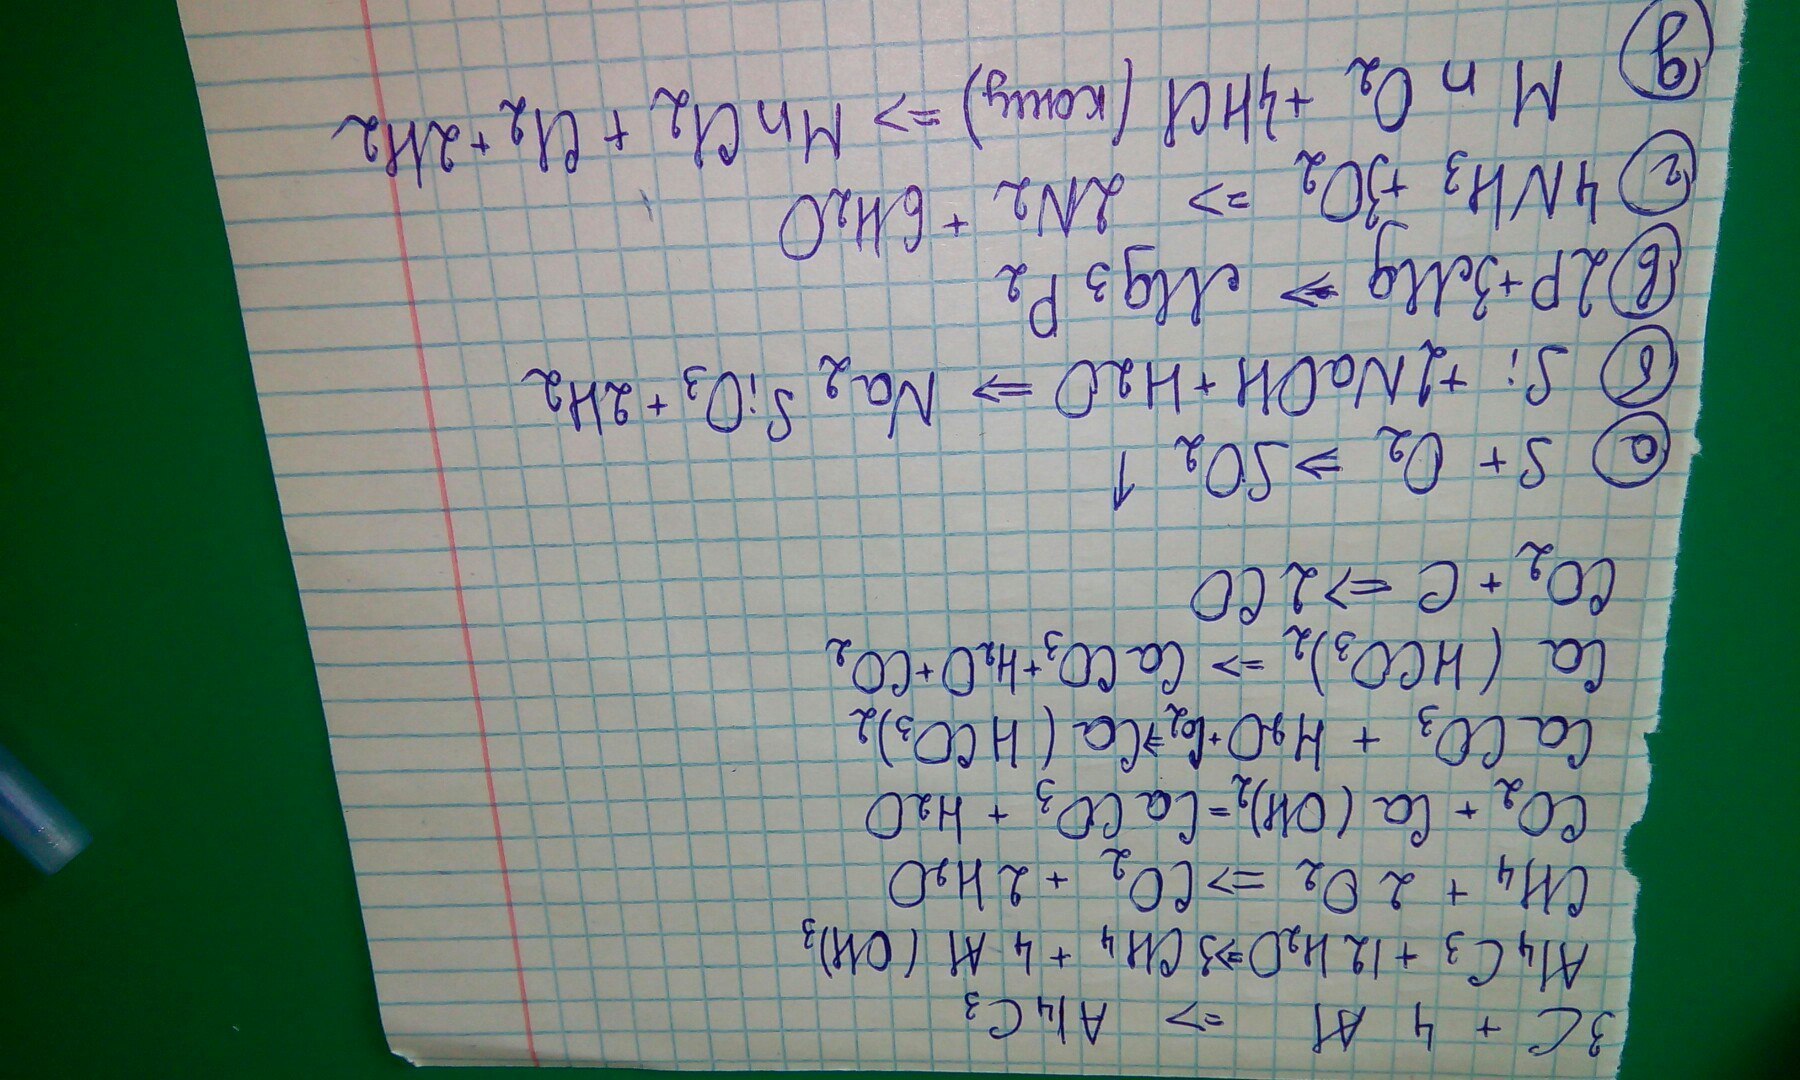 3C + 4Al => Al4C3
Al4C3 + 12H2O => 3CH4 + 4Al(OH)3
CH4 + 2O2 => CO2 + 2H2O
CO2 + Ca(OH)2 = CaCO3 + H2O
CaCO3 + H2O + CO2 => Ca(HCO3)2
Ca(HCO3)2 => CaCO3 + H2O + CO2
CO2 + C => 2CO
а S + O2 => SO2 ↑
б Si + 2NaOH + H2O => Na2SiO3 + 2H2
в 2P + 3Mg => Mg3P2
г 4NH3 + 3O2 => 2N2 + 6H2O
д MnO2 + 4HCl (конц) => MnCl2 + Cl2 + 2H2